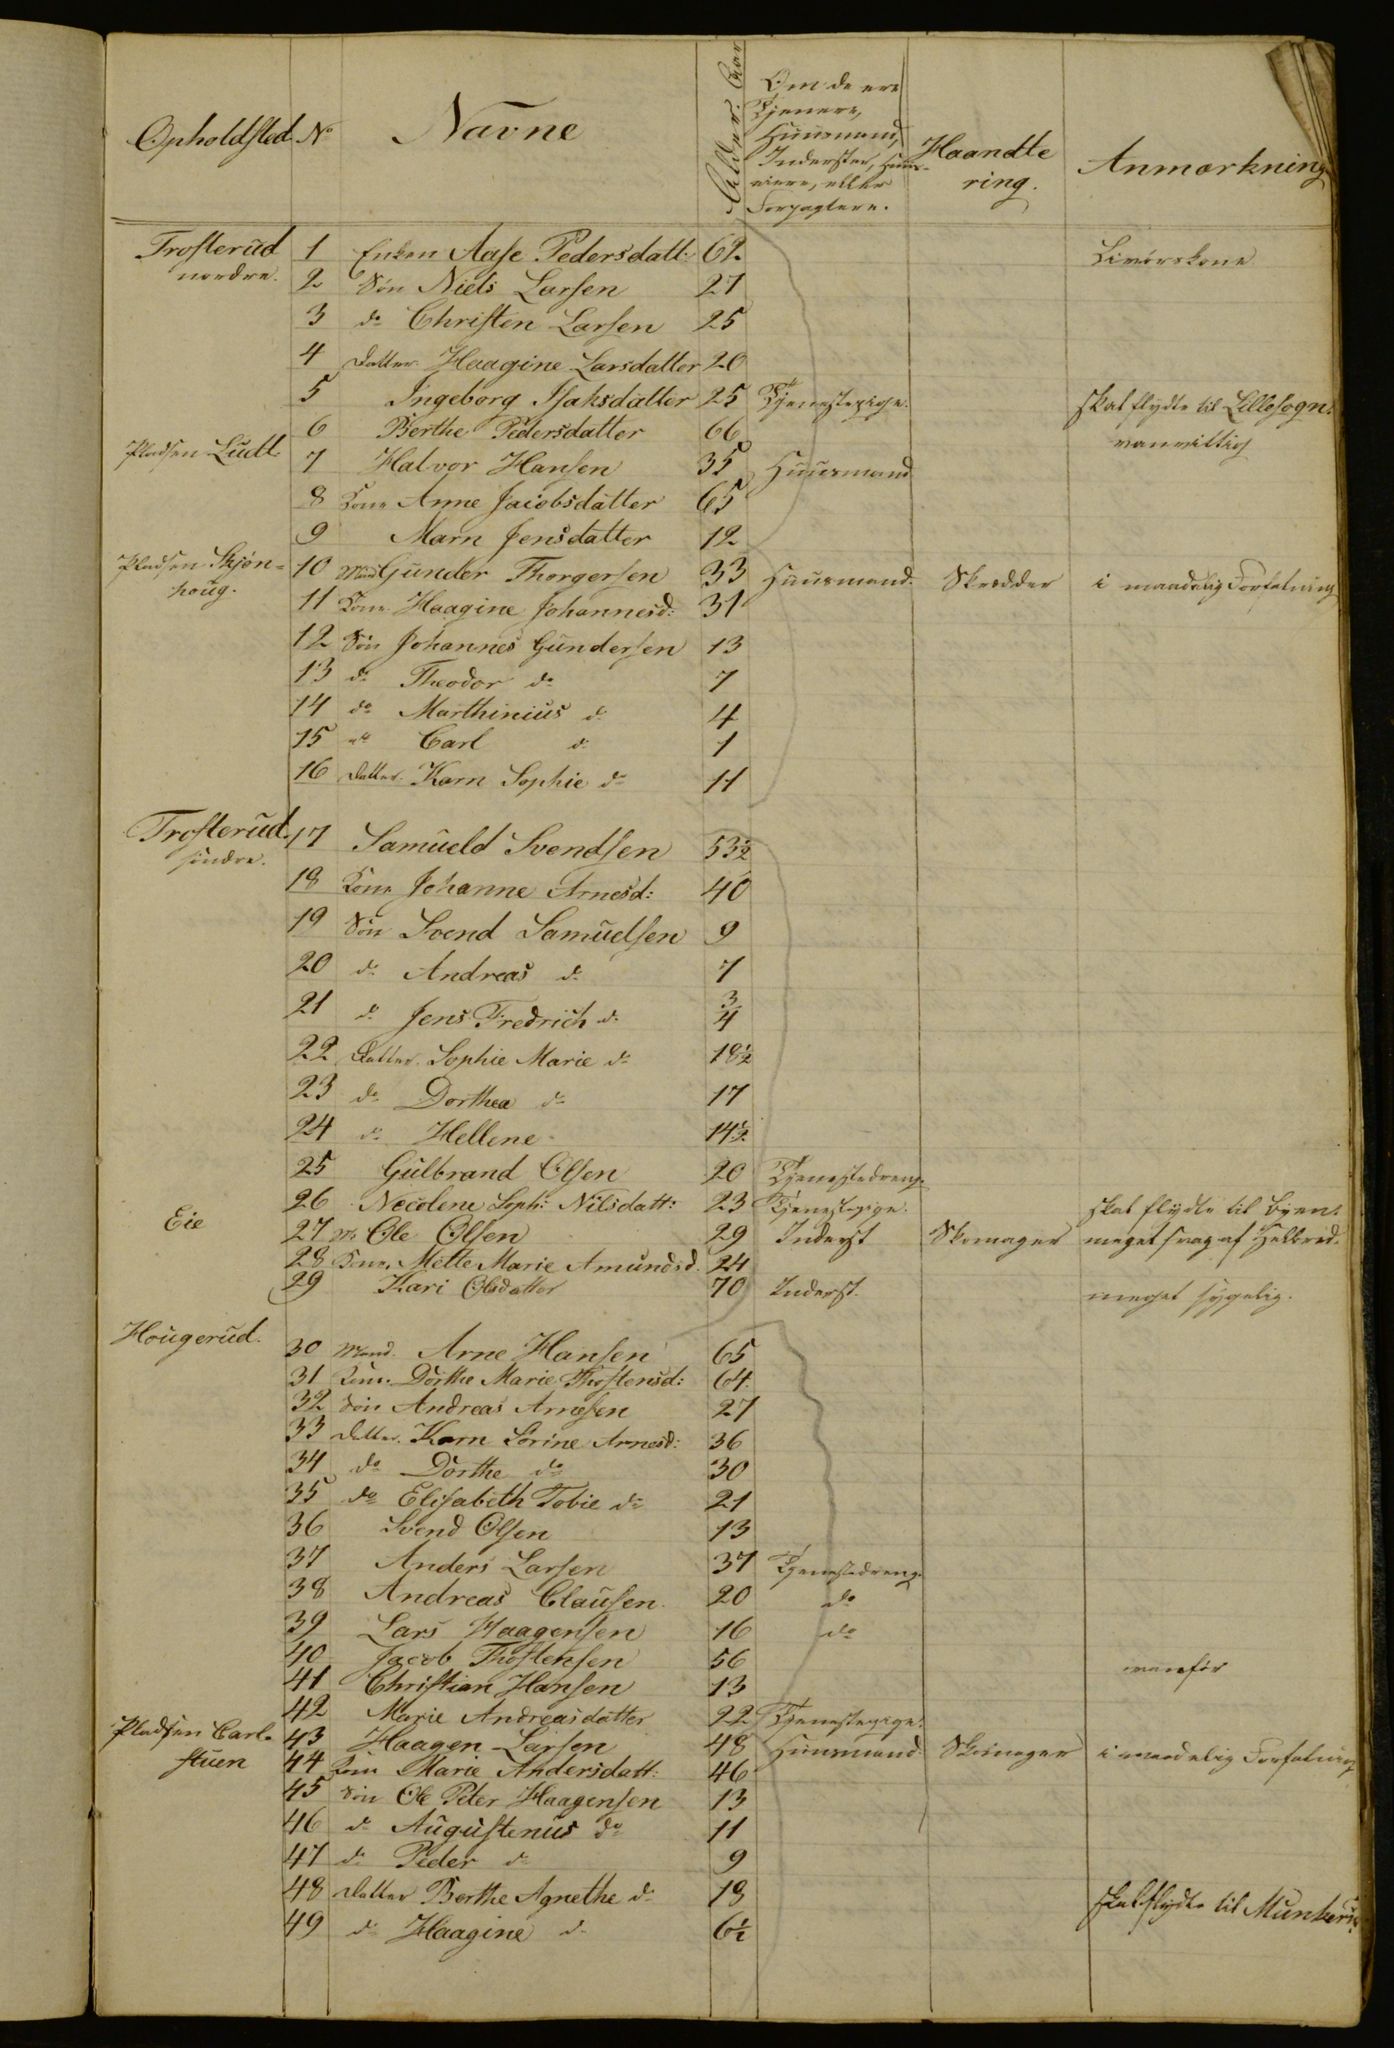 Opholdsted No Navne Alder. Aar Om de ere Tjenere, Huusmænd, Inderster, Huus-eiere, eller Forpagtere. Haandtering. Anmærkning
Trosterud 1 Enken Aase Pedersdatt: 62 Livørskone
nordre. 2 Søn Niels Larsen 27
3 do Christen Larsen 25
4 Datter Haagine Larsdatter 20
5 Ingeborg Isaksdatter 25 Tjenestepige. skal flydte til Lillesogn.
6 Berthe Pedersdatter 66 vanvittig
Pladsen 7 Halvor Hansen 35 Huusmand
8 Kone Anne Jacobsdatter 65
9 Marn Jensdatter 12
Pladsen Skjøn= 10 Mand Gunder Thorgersen 33 Huusmand. Skrædder i maadelig Forfatning
houg. 11 Kone Haagine Johannesd: 31
12 Søn Johannes Gundersen 13
13 do Theodor do 7
14 do Marthinius do 4
15 do Carl do 1
16 Datter Karn Sophie do 11
Trosterud 17 Samueld Svendsen 53½
søndre. 18 Kone Johanne Arnesd: 40
19 Søn Svend Samuelsen 9
20 do Andreas do 7
21 do Jens Fredrich do ¾
22 Datter Sophie Marie do 18½
23 do Dorthea do 17
24 do Hellene 14½
25 Gulbrand Olsen 20 Tjenestedreng.
26 Necolene Soph: Nilsdatt: 23 Tjenestepige. skal flydte til Byen.
Eie 27 M. Ole Olsen 29 Inderst Skomager meget svag af Helbred.
28 Kone Mette Marie Amundsd. 24
29 Kari Olsdatter 70 Inderst. meget sygelig.
Hougerud. 30 Mand. Arne Hansen 65
31 Kone. Dorthe Marie Thostensd: 64.
32 Søn Andreas Arnesen 27
33 Datter. Karn Sørine Arnesd: 36
34 do Dorthe do 30
35 do Elisabeth Tobie do 21
36 Svend Olsen 13
37 Anders Larsen 37 Tjenestedreng.
38 Andreas Clausen. 20 do
39 Lars Haagensen 16 do
40 Jacob Thostensen 56 vanfør
41 Christian Hansen 13
42 Marie Andreasdatter 22 Tjenestepige.
Pladsen Carl- 43 Haagen Larsen 48 Huusmand Skomager i maadelig Forfatning
stuen 44 Kone Marie Andersdatt: 46
45 Søn Ole Peter Haagensen 13
46 do Augustenus do 11
47 do Peder do 9
48 Datter Berthe Agnethe do 18 skal flydte til
49 do Haagine do 6½